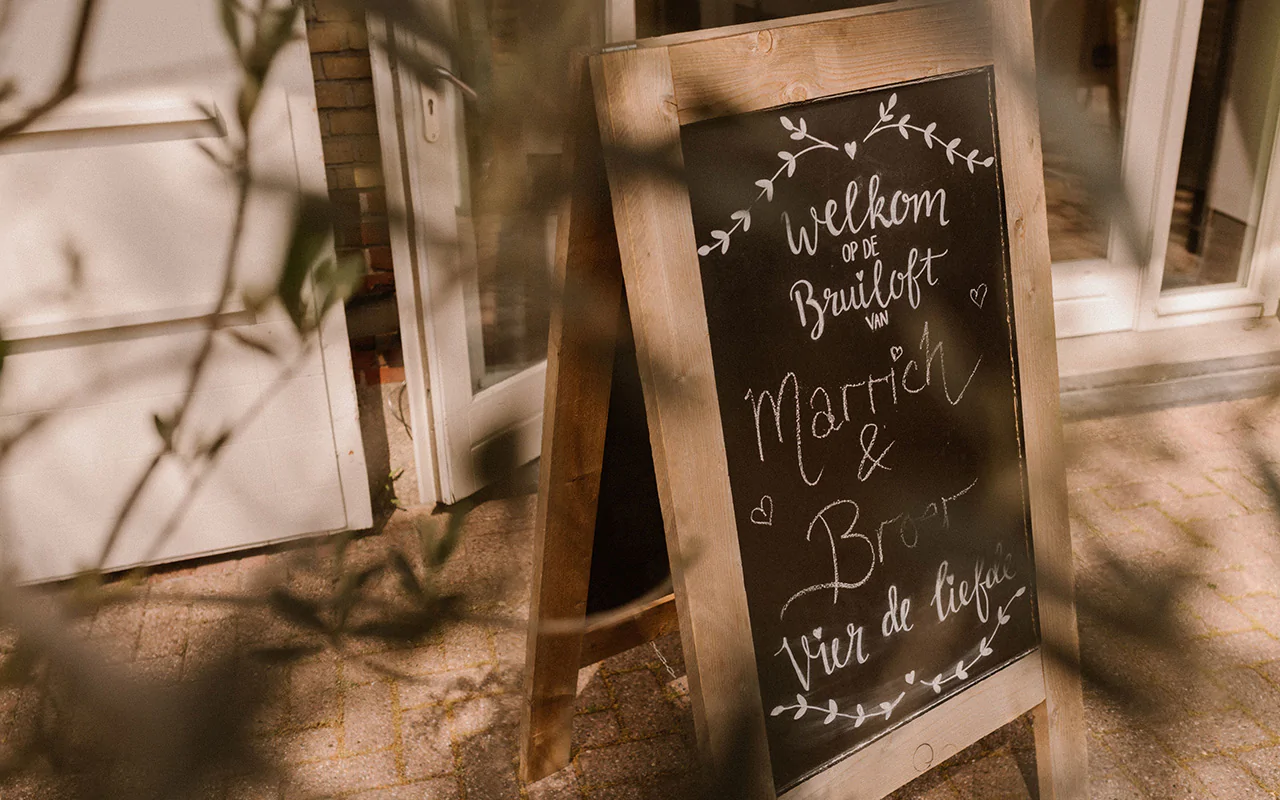 Welkom
OP DE
Bruiloft
VAN
Marrich
&
Broor
Vier de liefde